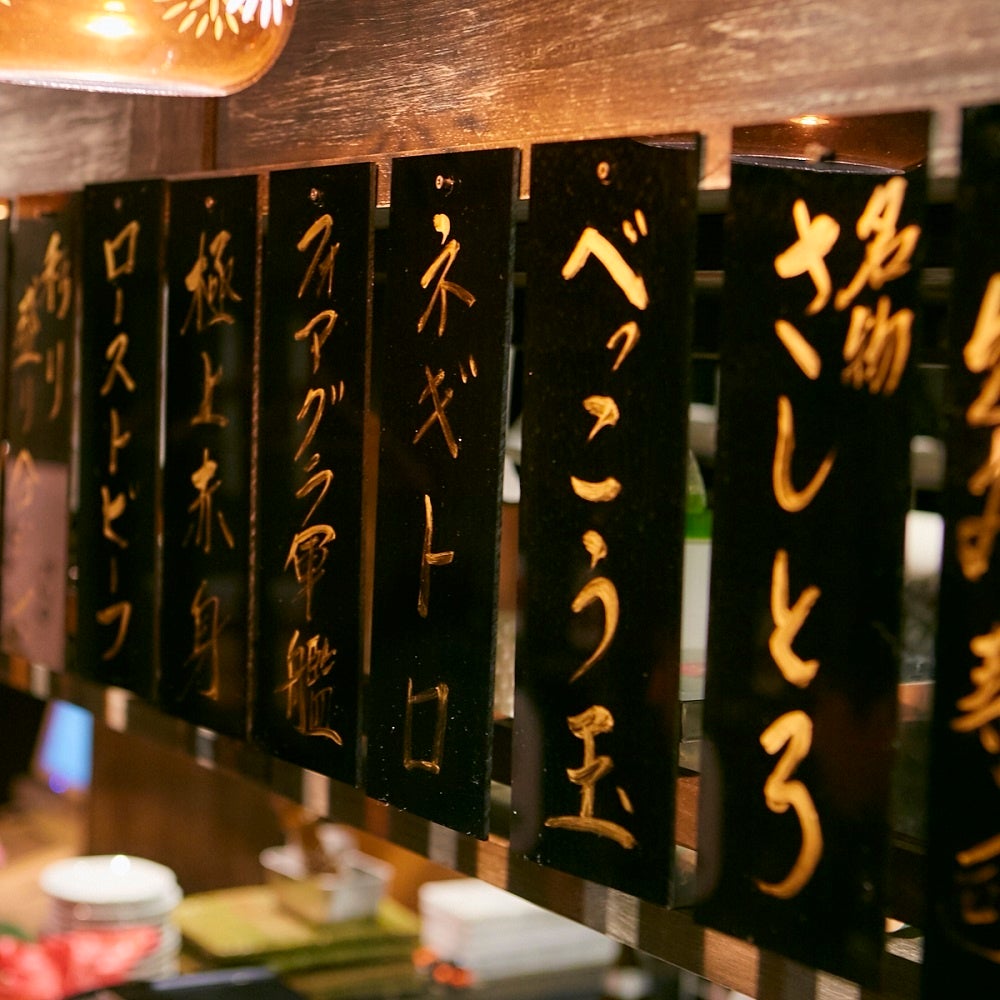 名物
さしとろ
べっこう玉
ネギトロ
フォアグラ軍艦
極上赤身
ローストビーフ